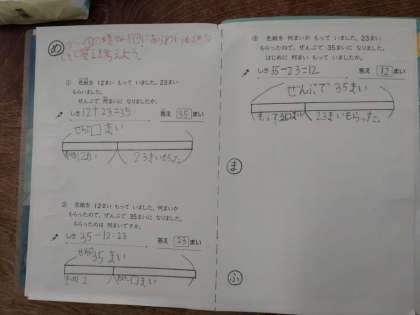 め
① 色紙を 12まい もって いました。23まい
もらいました。
ぜんぶで 何まいに なりましたか。
しき 12+23=35 答え 35 まい
ぜんぶで□まい
23まいもらった
② 色紙を 12まい もって いました。何まいか
もらったので、ぜんぶで 35まいに なりました。
もらったのは 何まいですか。
しき 35-12=23 答え 23 まい
35まい
□まい
③ 色紙を 何まいか もって いました。23まい
もらったので、ぜんぶで 35まいに なりました。
はじめに 何まい もって いましたか。
しき 35-23=12 答え 12 まい
ぜんぶで 35まい
もっていた□まい 23まいもらった
ま
ふ